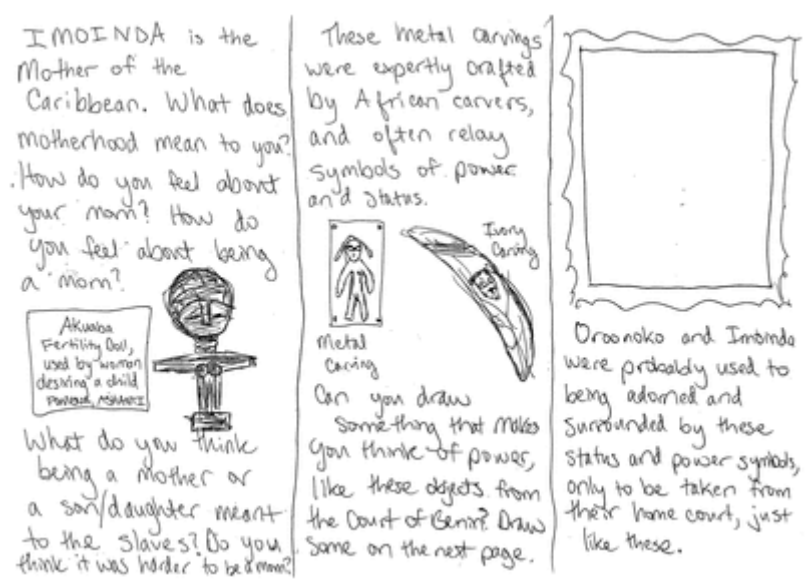 IMOINDA is the
Mother of the
Caribbean. What does
motherhood mean to you?
How do you feel about
your mom? How do
you feel about being
a mom?
Akuaba
Fertility Doll,
used by women
desiring a child
What do you think
being a mother or
a son/daughter meant
to the slaves? Do you
think it was harder to be a mom?
These metal carvings
were expertly crafted
by African carvers,
and often relay
symbols of power
and status.
Ivory
Carving
Metal
Carving
Can you draw
something that makes
you think of power,
like these objects from
the Court of Benin? Draw
some on the next page.
Oroonoko and Imoinda
were probably used to
being adorned and
surrounded by these
status and power symbols,
only to be taken from
their home court, just
like these.